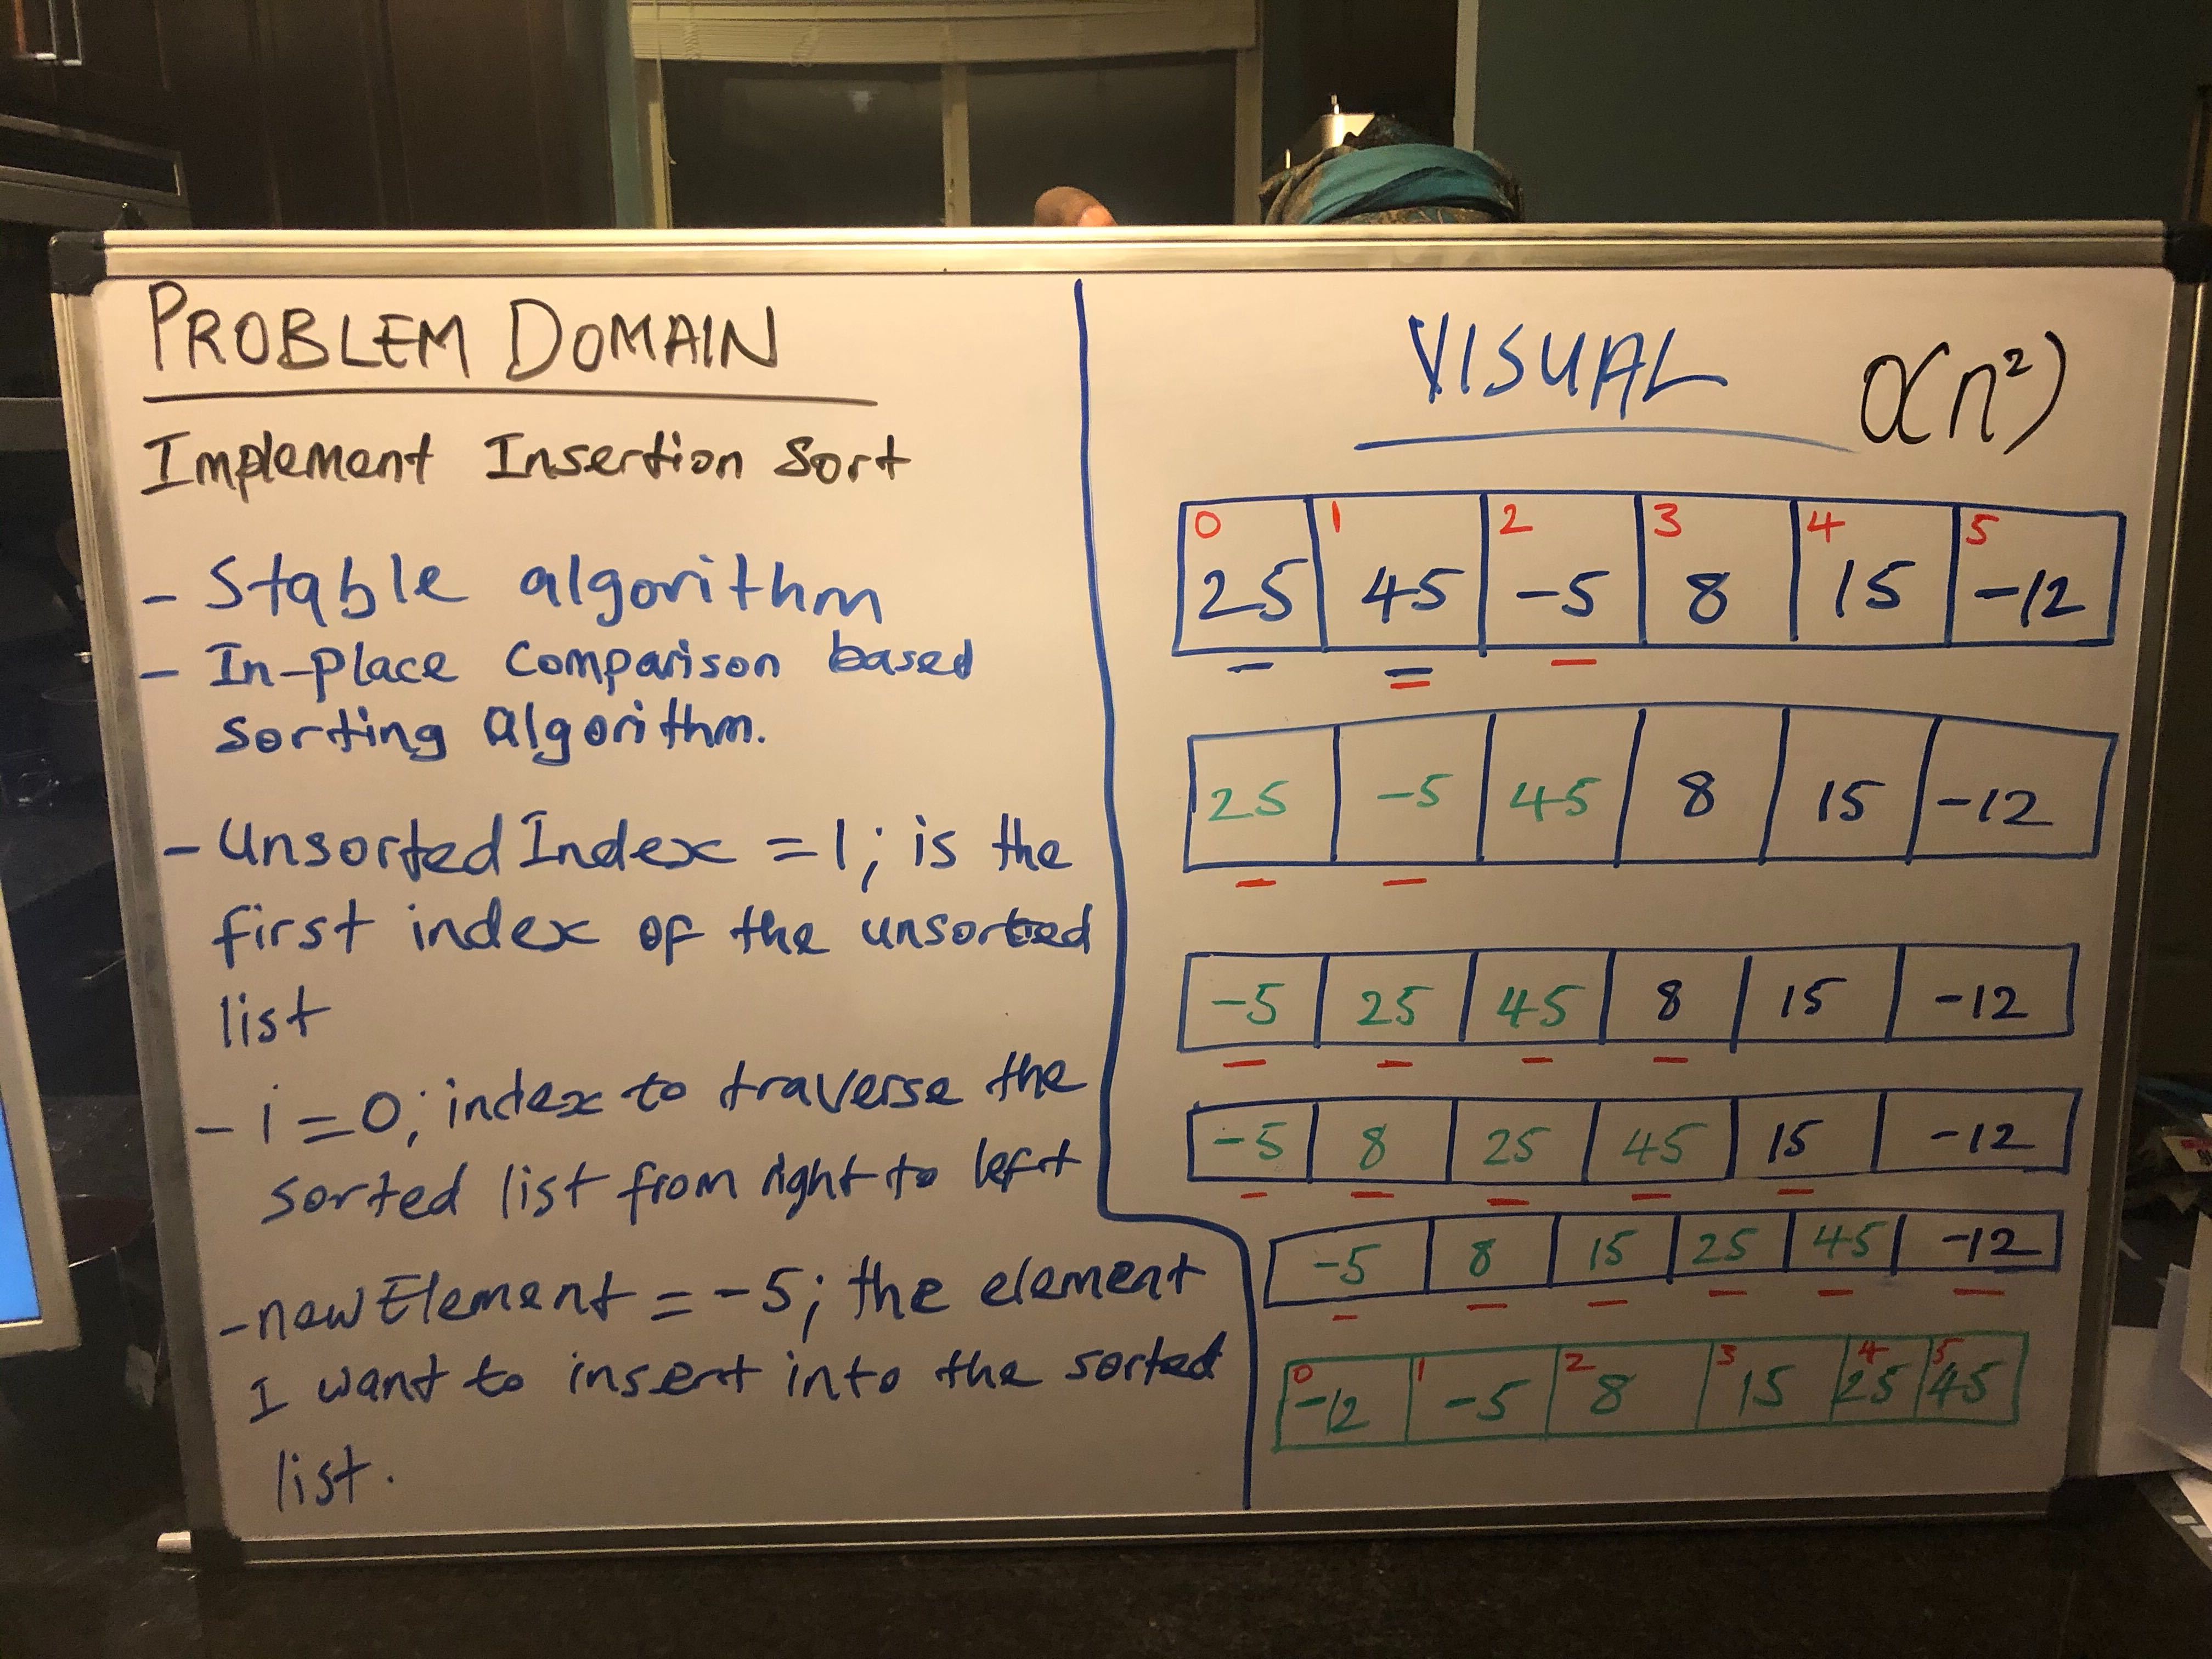 PROBLEM DOMAIN
Implement Insertion Sort
- Stable algorithm
- In-place comparison based
sorting algorithm.
- unsortedIndex = 1; is the
first index of the unsorted
list
- i = 0; index to traverse the
sorted list from right to left
- newElement = -5; the element
I want to insert into the sorted
list.
VISUAL O(n²)
0 1 2 3 4 5
25 45 -5 8 15 -12
25 -5 45 8 15 -12
-5 25 45 8 15 -12
-5 8 25 45 15 -12
-5 8 15 25 45 -12
0 1 2 3 4 5
-12 -5 8 15 25 45